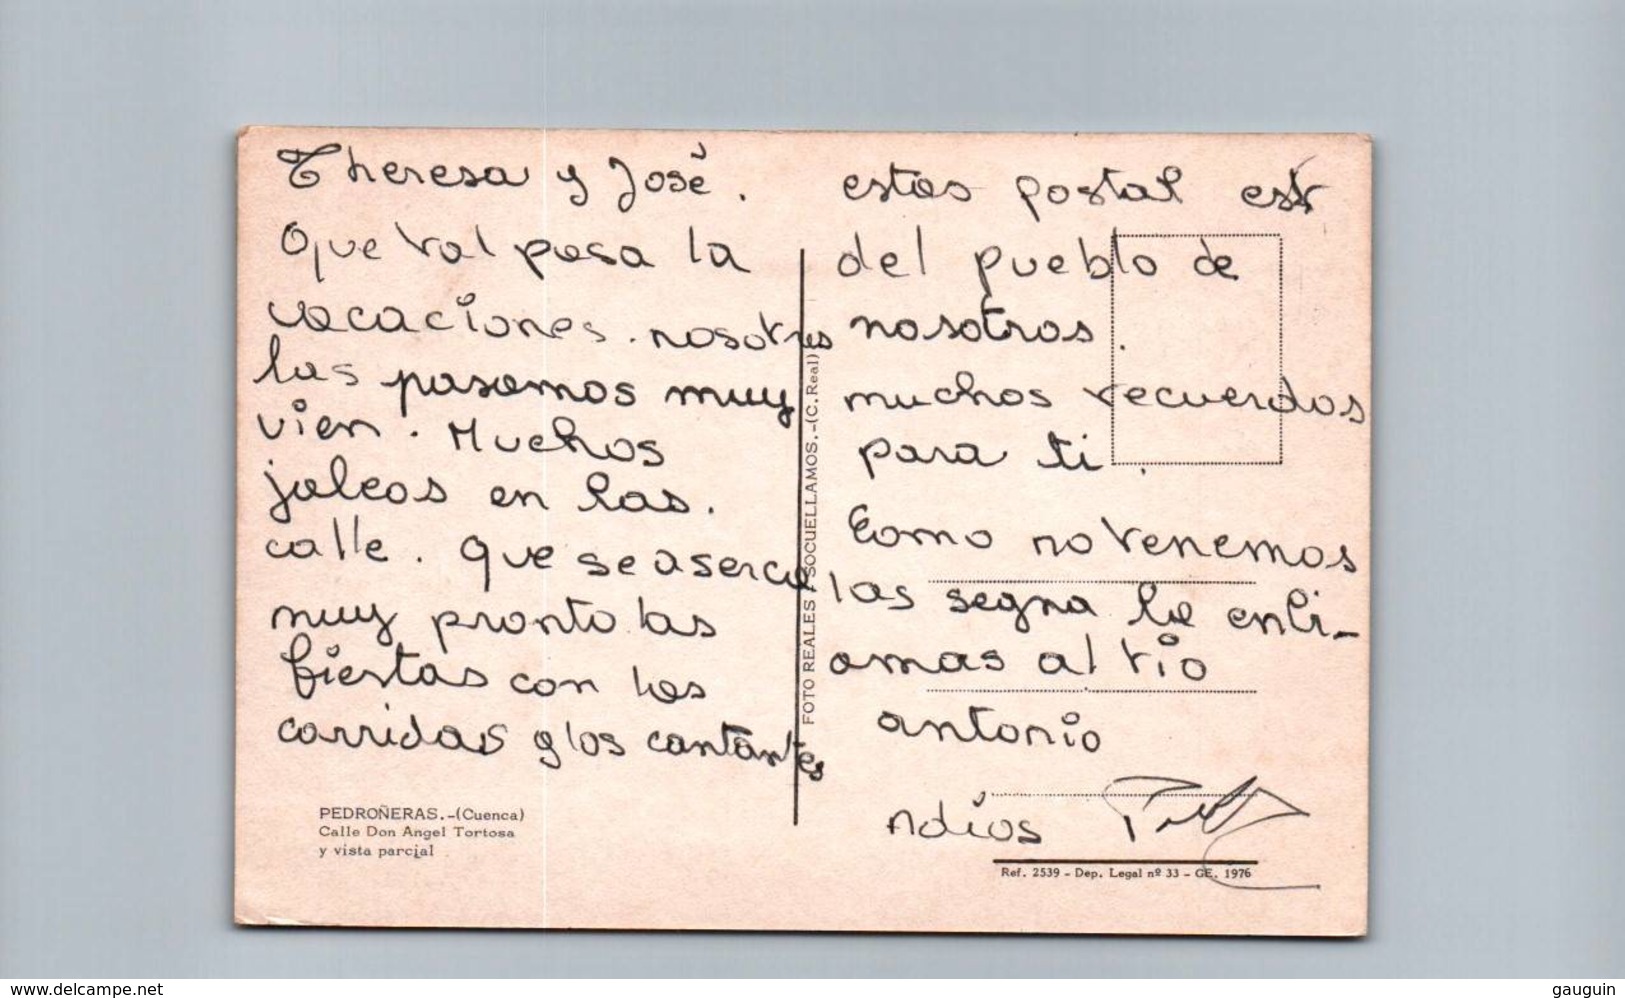 Theresa y José.
Que tal pasa la
vacaciones. nosotres
las pasamos muy
vien. Muchos
jaleos en las.
calle. que se aserca
muy pronto las
fiestas con los
corridas y los cantantes
estas postal est
del pueblo de
nosotros.
muchos recuerdos
para ti.
Como no tenemos
las segna la enbi-
amas al tio
antonio
Adios
PEDROÑERAS.-(Cuenca)
Calle Don Angel Tortosa
y vista parcial
FOTO REALES - SOCUELLAMOS.-(C. Real)
Ref. 2539 - Dep. Legal nº 33 - GE. 1976
www.delcampe.net
gauguin